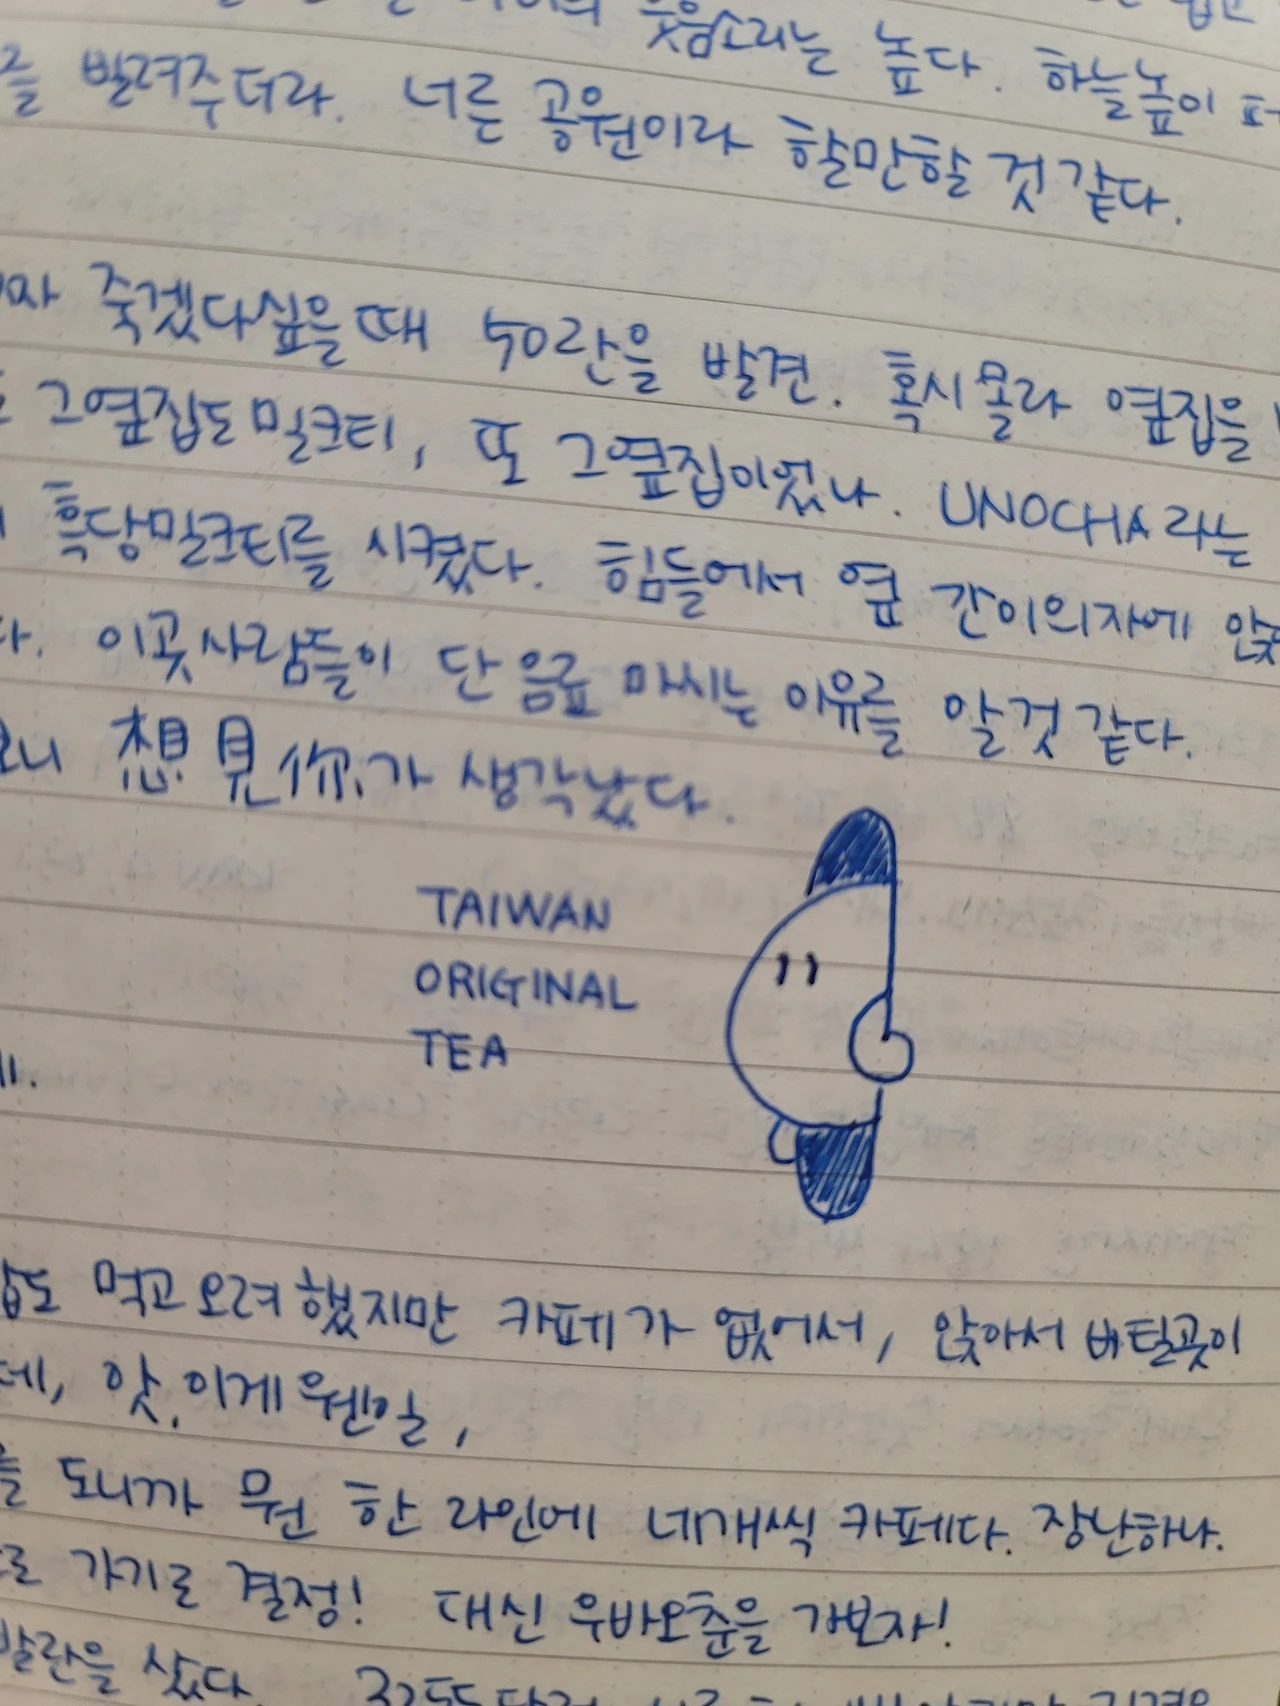 웃음소리는 높다. 하늘높이
를 발려주더라. 너른 공원이라 할만할 것 같다.
죽겠다싶을때 50란을 발견. 혹시 몰라 옆집을
그옆집도 밀크티, 또 그옆집이었나. UNOCHA라는
흑당밀크티를 시켰다. 힘들에서 옆 간이의자에
다. 이곳사람들이 단 음료 마시는 이유를 알것 같다.
보니 想見你가 생각났다.
TAIWAN
ORIGINAL
TEA
먹고 오려했지만 카페가 없어서, 앉아서 버틸곳이
데, 앗, 이게 웬일,
를 도니까 뭔 한 라인에 네개씩 카페다. 장난하나.
로 가기로 결정! 대신 우바오춘을 가보자!
샀다.